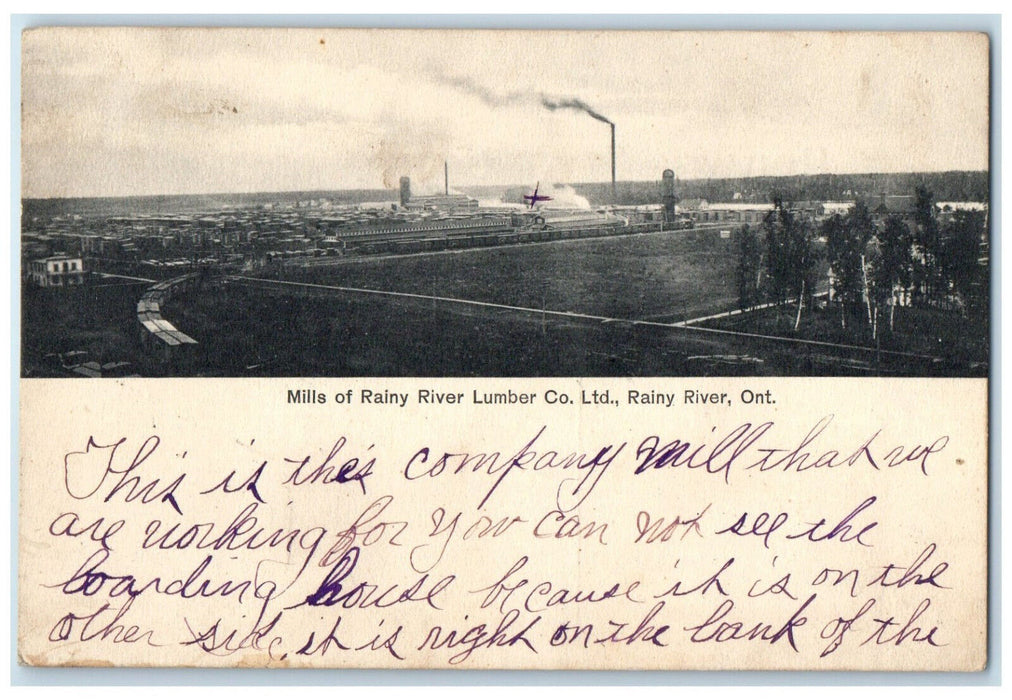 Mills of Rainy River Lumber Co. Ltd., Rainy River, Ont.
This is the's company mill that we
are working for you can not see the
boarding house because it is on the
other side. it is right on the bank of the